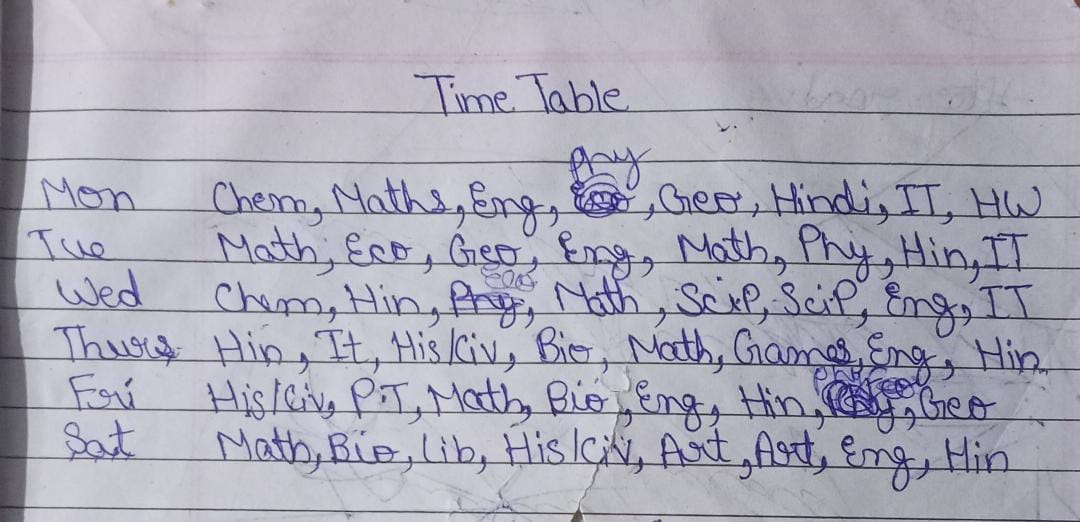 Time Table
Phy
Mon Chem, Maths, Eng, , Geo, Hindi, IT, HW
Tue Math, Eco, Geo, Eng, Math, Phy, Hin, IT
Wed Chem, Hin, , Math, Sci.P, Sci.P, Eng, IT
Thurs Hin, It, His/Civ, Bio, Math, Games, Eng, Hin
Fri His/Civ, P.T, Math, Bio, Eng, Hin, , Geo
Sat Math, Bio, Lib, His/Civ, Art, Art, Eng, Hin